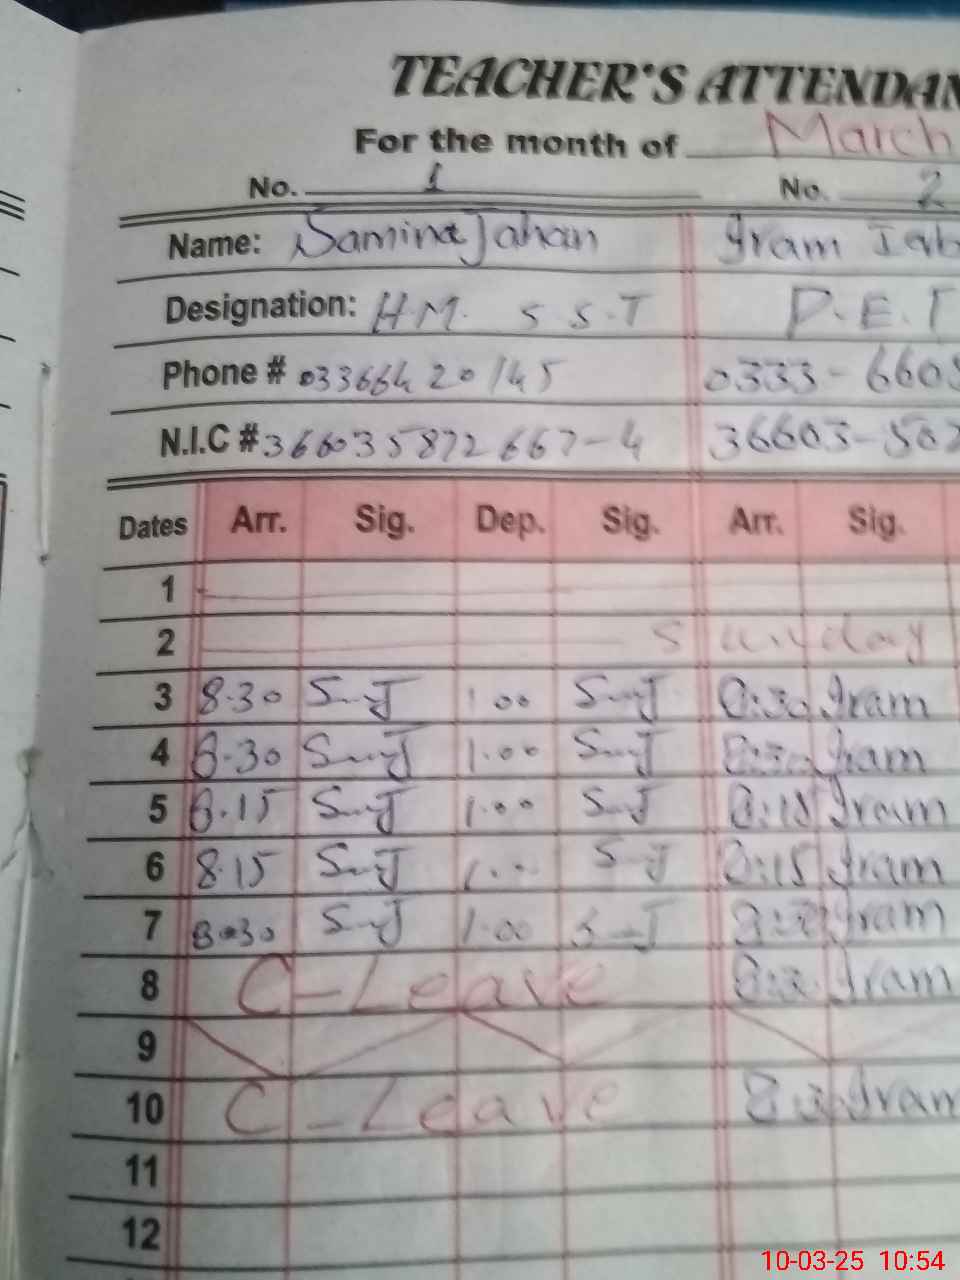 TEACHER'S ATTENDAN
For the month of March
No. 1 No. 2
Name: Samina Jahan Iram Iqb
Designation: H.M. S S.T P.E.T
Phone # 03366420145 0333-6608
N.I.C # 366035872667-4 36603-507
Dates Arr. Sig. Dep. Sig. Arr. Sig.
1
2 Sunday
3 8.30 SmJ 1.00 SmJ 8:30 Iram
4 8.30 SmJ 1.00 SmJ 8:30 Iram
5 8.15 SmJ 1.00 SmJ 8:15 Iram
6 8.15 SmJ 1.00 SmJ 8:15 Iram
7 8.30 SmJ 1.00 SmJ 8:30 Iram
8 C-Leave Iram
9
10 C-Leave 8:30 Iram
11
12
10-03-25 10:54